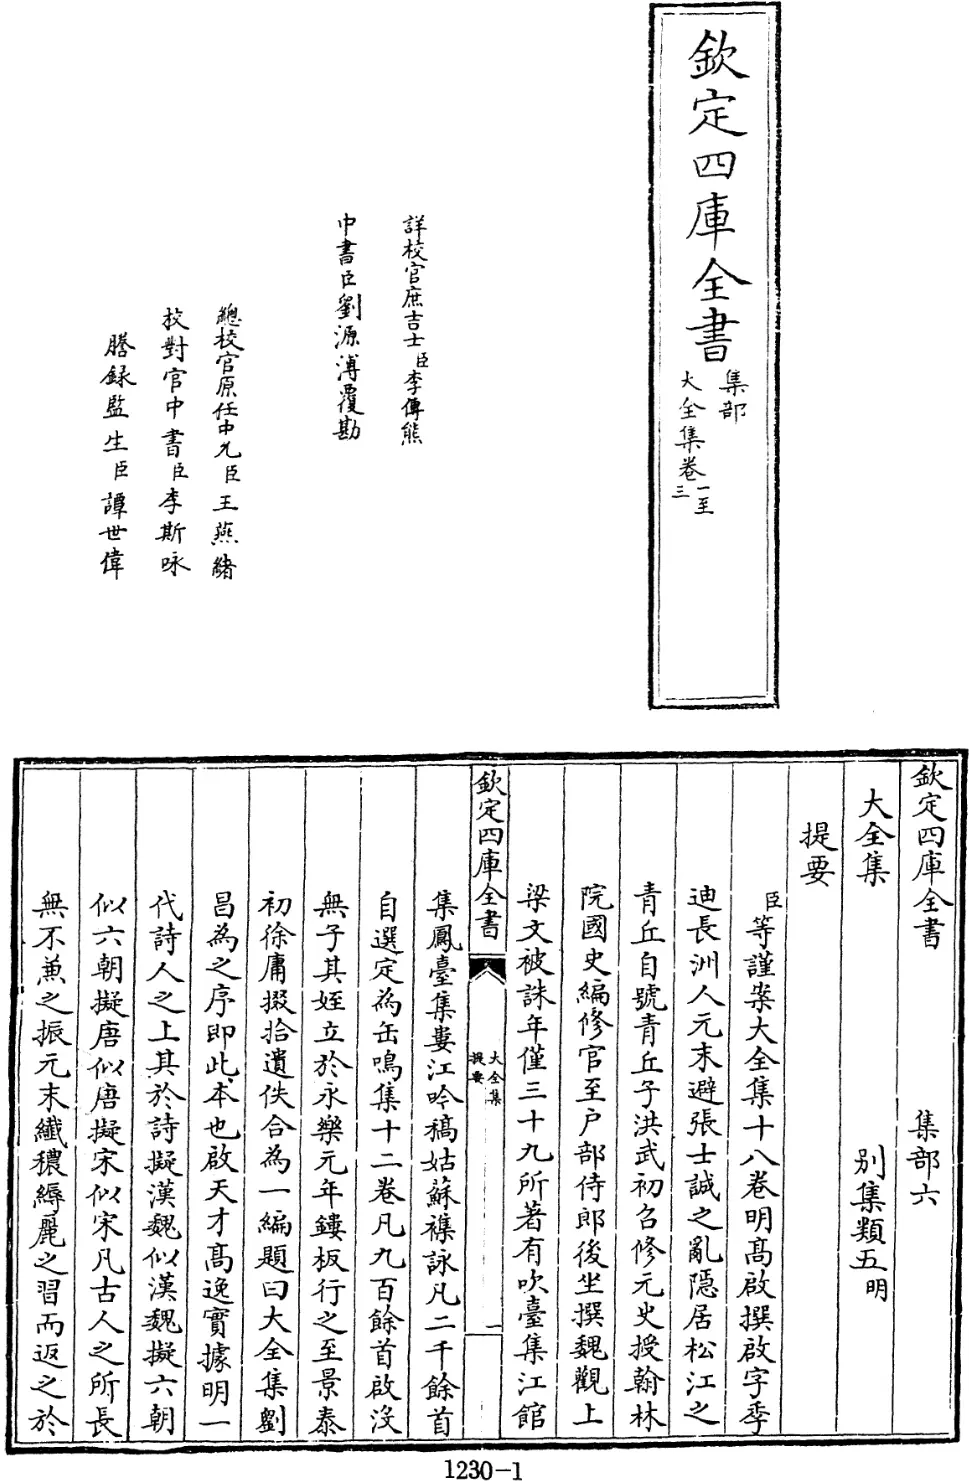 欽定四庫全書
集部
大全集卷一至三
詳校官庶吉士臣李傳熊
中書臣劉源溥覆勘
總校官原任中允臣王燕緒
校對官中書臣李斯咏
謄録監生臣譚世偉
欽定四庫全書 集部六
大全集 别集類五明
提要
臣等謹案大全集十八卷明髙啟撰啟字季
迪長洲人元末避張士誠之亂隠居松江之
青丘自號青丘子洪武初召修元史授翰林
院國史編修官至户部侍郎後坐撰魏觀上
梁文被誅年僅三十九所著有吹臺集江館
欽定四庫全書
大全集
提要
一
集鳳臺集婁江吟稿姑蘇襍詠凡二千餘首
自選定為缶鳴集十二卷凡九百餘首啟沒
無子其姪立於永樂元年鏤板行之至景泰
初徐庸掇拾遺佚合為一編題曰大全集劉
昌為之序即此本也啟天才髙逸實據明一
代詩人之上其於詩擬漢魏似漢魏擬六朝
似六朝擬唐似唐擬宋似宋凡古人之所長
無不兼之振元末纖穠縟麗之習而返之於
1230-1